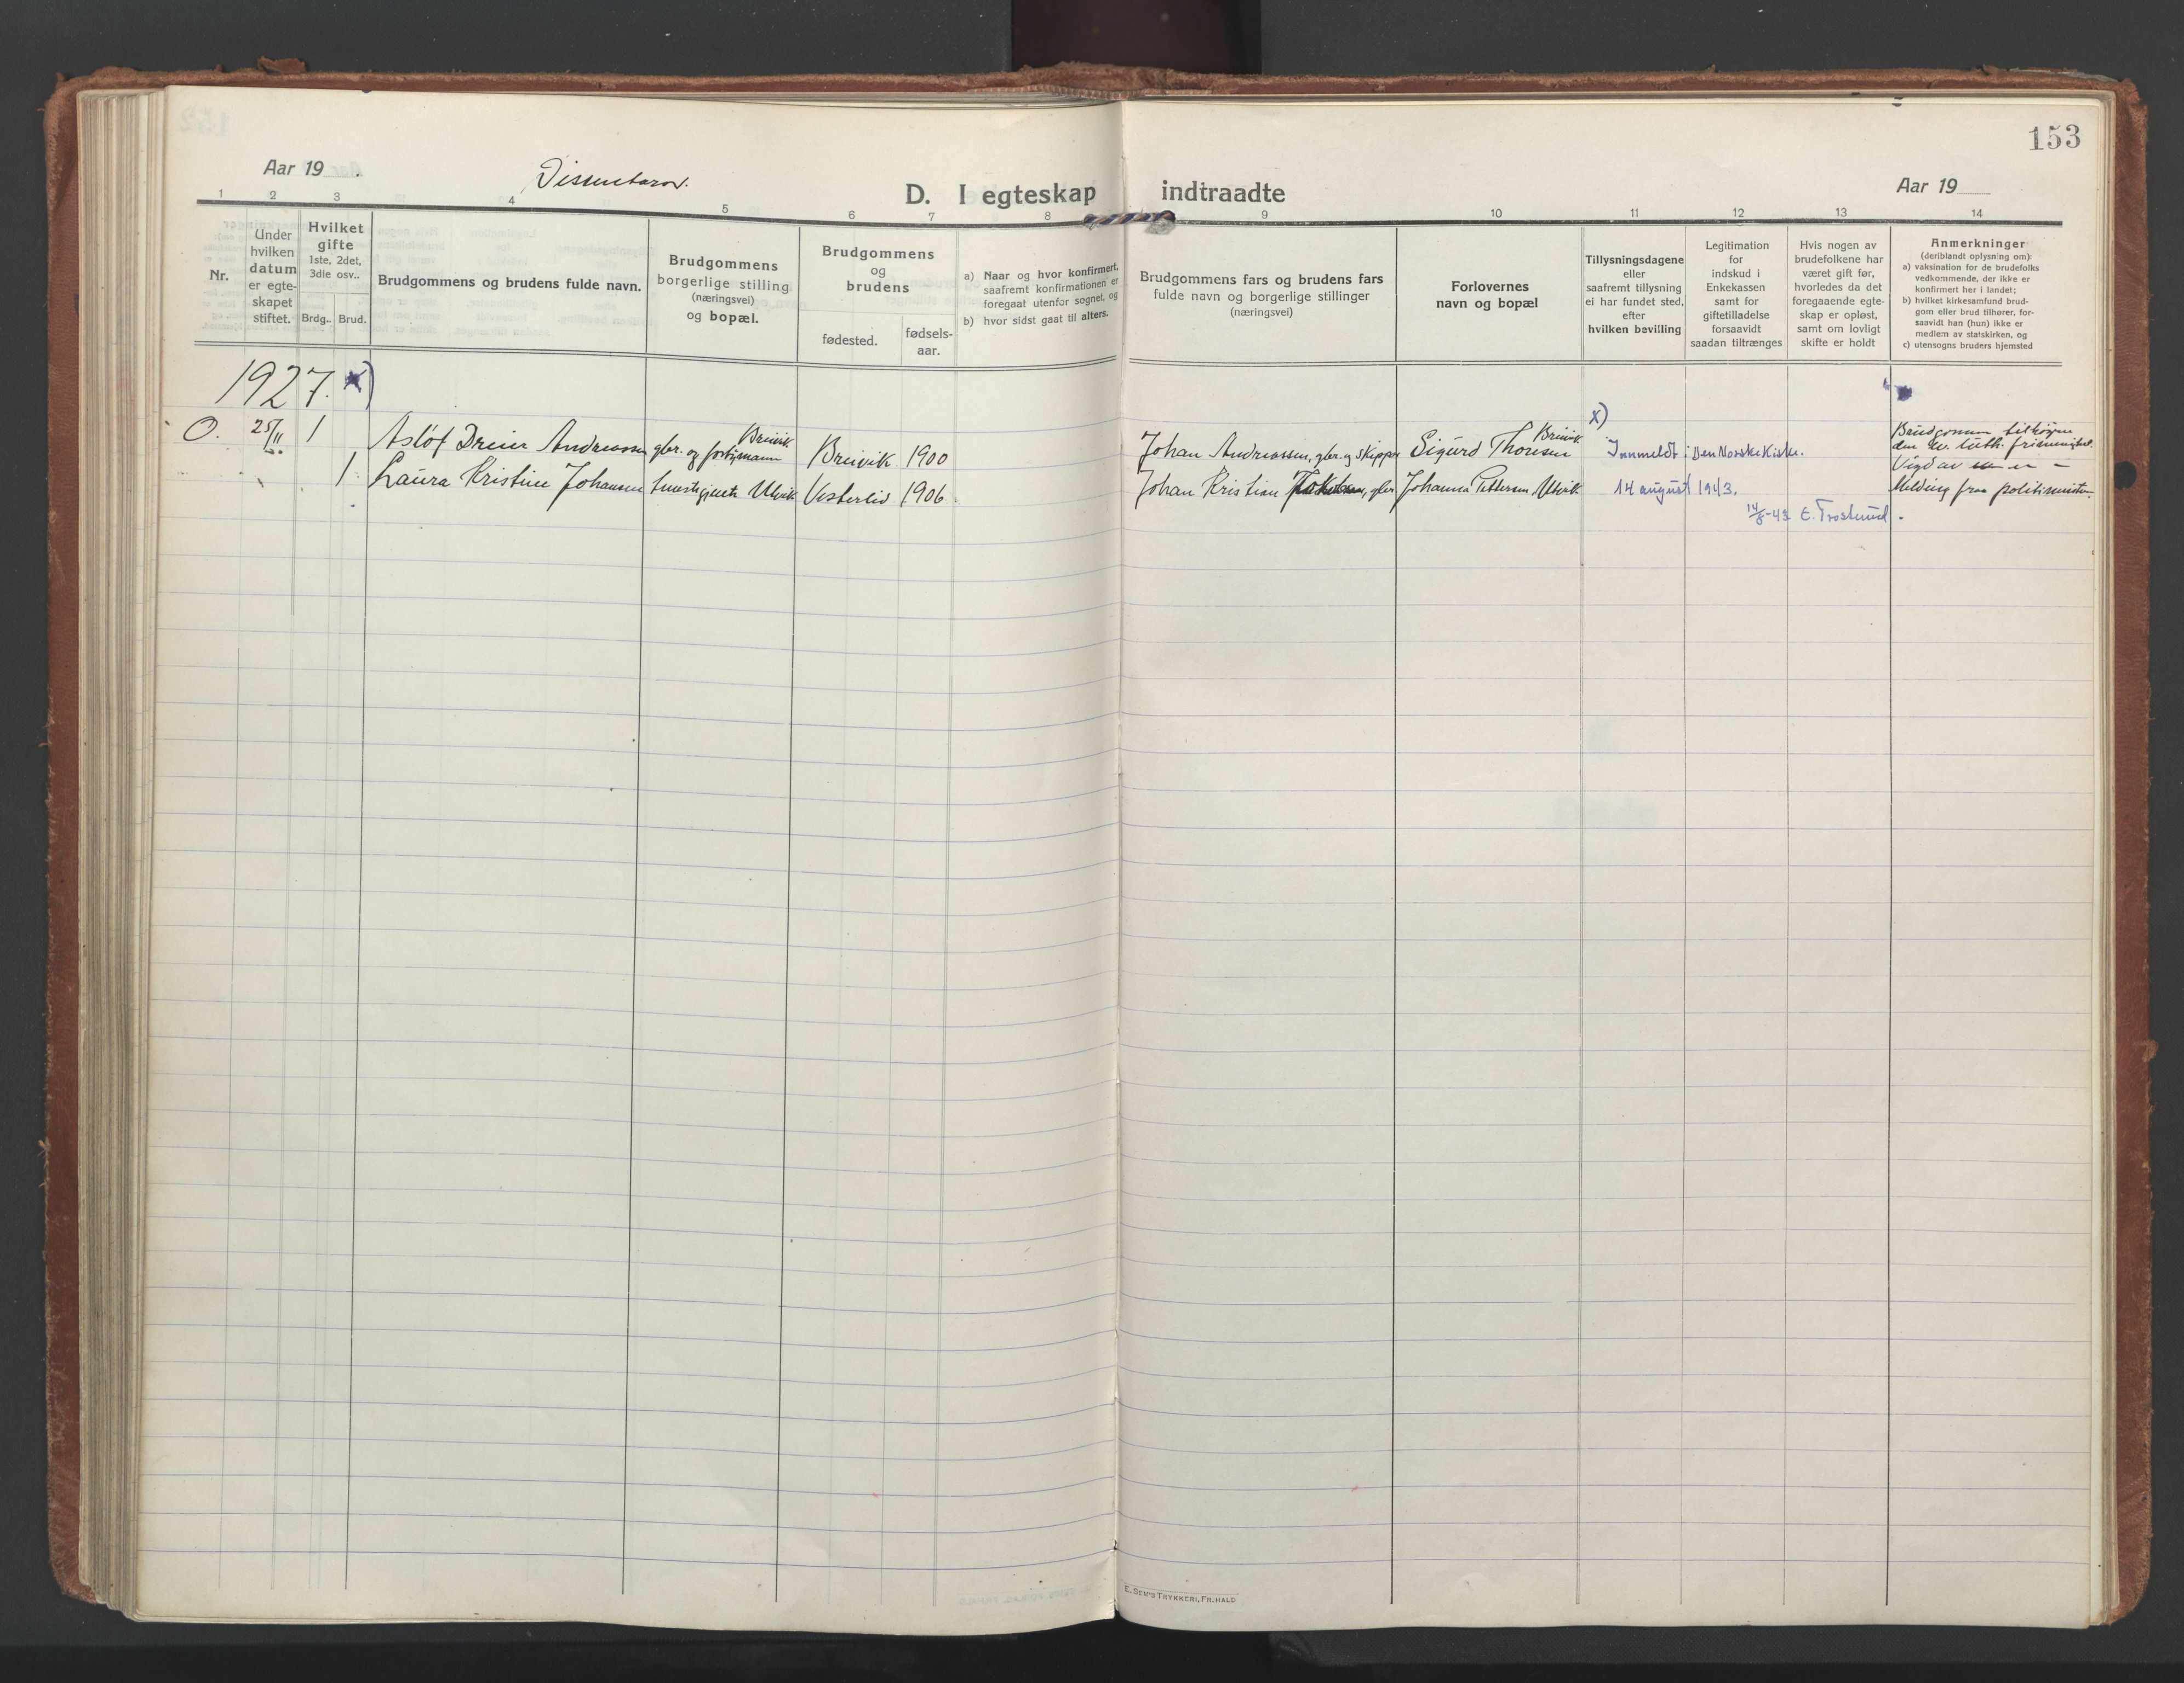 153
Aar 19
Dissentarar.
D. I egteskap indtraadte
Aar 19
1 2 3 4 5 6 7 8 9 10 11 12 13 14
Nr.
Under
hvilken
datum
er egte-
skapet
stiftet.
Hvilket
gifte
1ste, 2det,
3die osv..
Brdg.. Brud.
Brudgommens og brudens fulde navn.
Brudgommens
borgerlige stilling
(næringsvei)
og bopæl.
Brudgommens
og
brudens
fødested.
fødsels-
aar.
a) Naar og hvor konfirmert,
saafremt konfirmationen er
foregaat utenfor sognet, og
b) hvor sidst gaat til alters.
Brudgommens fars og brudens fars
fulde navn og borgerlige stillinger
(næringsvei)
Forlovernes
navn og bopæl
Tillysningsdagene
eller
saafremt tillysning
ei har fundet sted,
efter
hvilken bevilling
Legitimation
for
indskud i
Enkekassen
samt for
giftetilladelse
forsaavidt
saadan tiltrænges
Hvis nogen av
brudefolkene har
været gift før,
hvorledes da det
foregaaende egte-
skap er opløst,
samt om lovligt
skifte er holdt
Anmerkninger
(deriblandt oplysning om):
a) vaksination for de brudefolks
vedkommende, der ikke er
konfirmert her i landet;
b) hvilket kirkesamfund brud-
gom eller brud tilhører, for-
saavidt han (hun) ikke er
medlem av statskirken, og
c) utensogns bruders hjemsted
1927. x)
O. 25/11 1 Asløf Dreier Andreassen gbr. og forbymann Breivik Breivik 1900
1 Laura Kristine Johansen tenestegjente Ulvik Vesterlid 1906
Johan Andreassen, gbr. og skipper Sigurd Thoresen Breivik
Johan Kristian gbr. Johanna Pettersen Ulvik
x)
Innmeldt i Den Norske Kirke.
14 august 1943.
14/8-43 E. Trostrud.
Brudgommen tilhøyrer
den ev. luth. frimenighet.
Vigd av
Melding fraa politimesteren
E. Sem's Trykkeri, Fr.hald